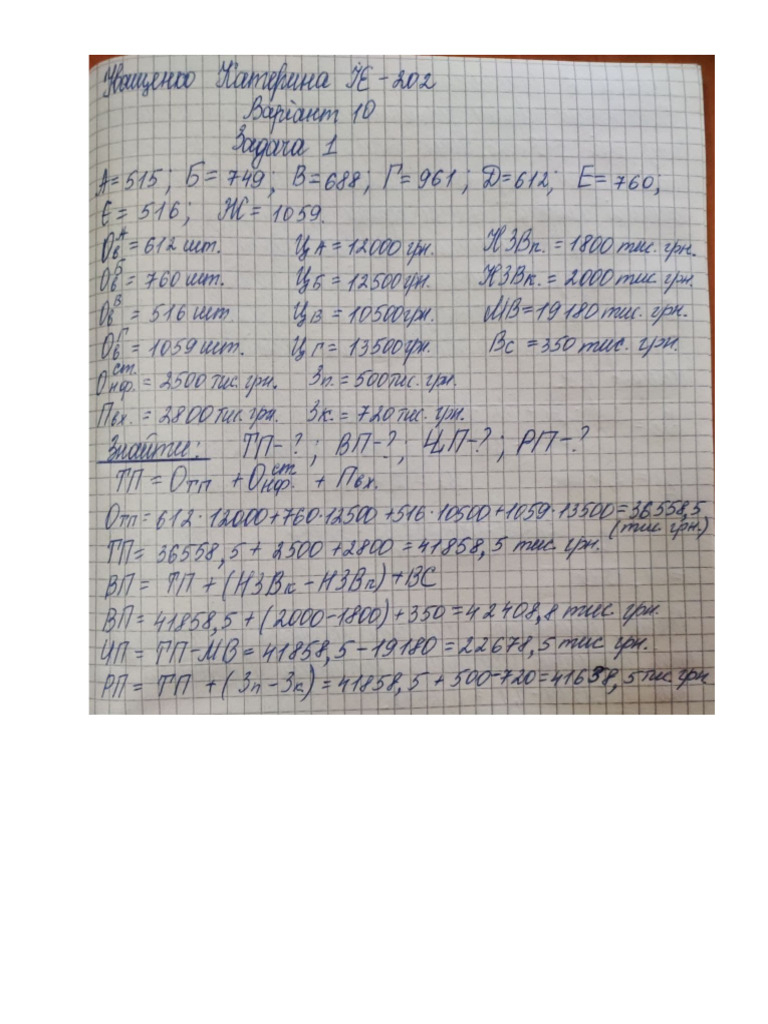 Іващенко Катерина ІЕ-202
Варіант 10
Задача 1
А=515; Б=749; В=688; Г=961; Д=612; Е=760;
Є=516; Ж=1059.
Ов^А=612 шт. ЦА=12000грн. НЗВп.=1800 тис. грн.
Ов^Б=760 шт. ЦБ=12500грн. НЗВк.=2000 тис. грн.
Ов^В=516 шт ЦВ=10500грн. МВ=19180 тис. грн.
Ов^Г=1059 шт. ЦГ=13500грн. Вс=350 тис. грн.
Онф.^ст.=2500 тис. грн. Зп.=500тис. грн.
Пвх.=2800 тис. грн. Зк.=720 тис. грн.
Знайти: ТП-?; ВП-?; ЧП-?; РП-?
ТП=Отп+Онф.^ст.+Пвх.
Отп=612·12000+760·12500+516·10500+1059·13500=36558,5
(тис. грн.)
ТП=36558,5+2500+2800=41858,5 тис. грн.
ВП=ТП+(НЗВк-НЗВп)+ВС
ВП=41858,5+(2000-1800)+350=42408,8 тис. грн.
ЧП=ТП-МВ=41858,5-19180=22678,5 тис. грн.
РП=ТП+(Зп-Зк)=41858,5+500-720=41638,5 тис. грн